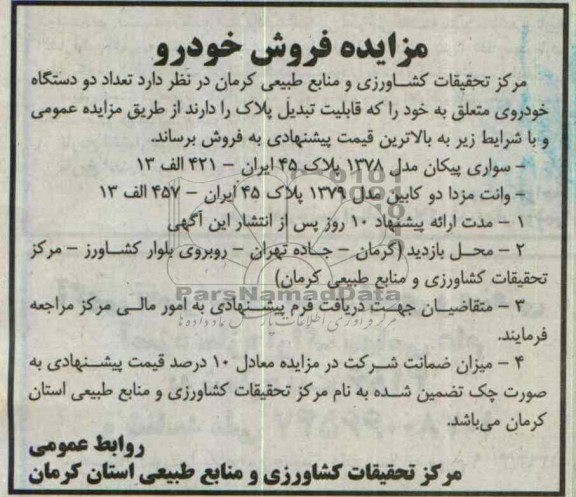 مزایده فروش خودرو
مرکز تحقیقات کشاورزی و منابع طبیعی کرمان در نظر دارد تعداد دو دستگاه
خودروی متعلق به خود را که قابلیت تبدیل پلاک را دارند از طریق مزایده عمومی
و با شرایط زیر به بالاترین قیمت پیشنهادی به فروش برساند.
- سواری پیکان مدل ۱۳۷۸ پلاک ۴۵ ایران - ۴۲۱ الف ۱۳
- وانت مزدا دو کابین مدل ۱۳۷۹ پلاک ۴۵ ایران - ۴۵۷ الف ۱۳
۱ - مدت ارائه پیشنهاد ۱۰ روز پس از انتشار این آگهی
۲ - محل بازدید (کرمان - جاده تهران - روبروی بلوار کشاورز - مرکز
تحقیقات کشاورزی و منابع طبیعی کرمان)
ParsNamadData
۳ - متقاضیان جهت دریافت فرم پیشنهادی به امور مالی مرکز مراجعه
فرمایند.
۴ - میزان ضمانت شرکت در مزایده معادل ۱۰ درصد قیمت پیشنهادی به
صورت چک تضمین شده به نام مرکز تحقیقات کشاورزی و منابع طبیعی استان
کرمان می‌باشد.
روابط عمومی
مرکز تحقیقات کشاورزی و منابع طبیعی استان کرمان